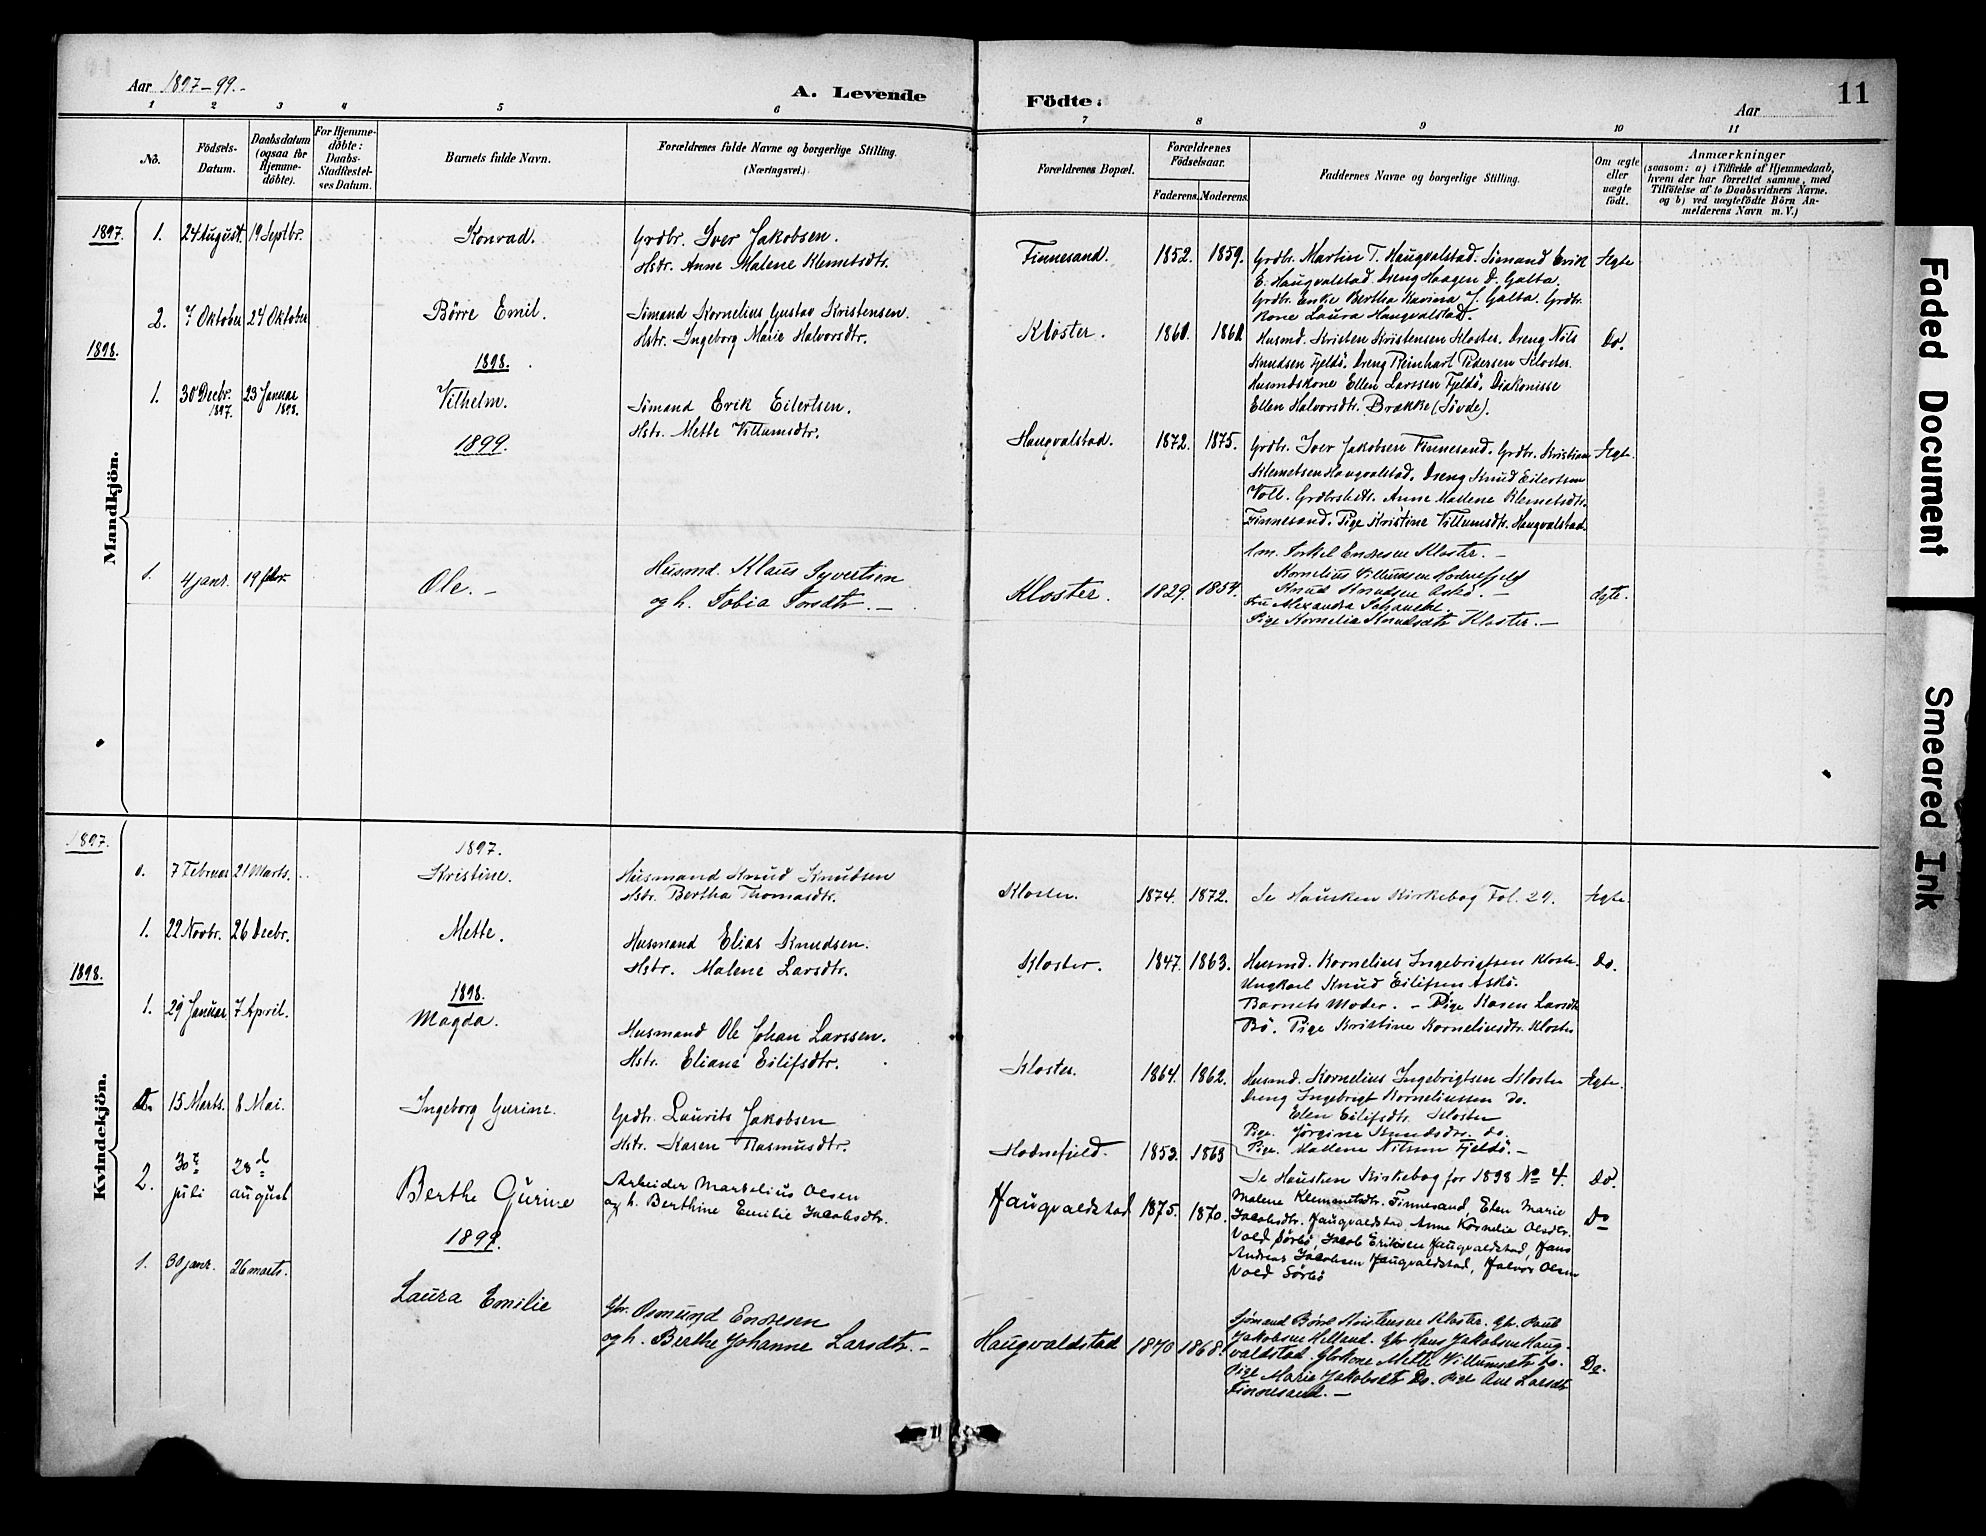 Aar 1897-99.-
A. Levende
Födte.
Aar
11
1 2 3 4 5 6 7 8 9 10 11
No.
Födsels-Datum.
Daabsdatum (ogsaa for Hjemmedöbte).
For Hjemmedöbte: Daabs-Stadfestelses Datum.
Barnets fulde Navn.
Forældrenes fulde Navne og borgerlige Stilling. (Næringsvei.)
Forældrenes Bopæl.
Forældrenes Födselsaar.
Faderens. Moderens.
Faddernes Navne og borgerlige Stilling.
Om ægte eller uægte födt.
Anmærkninger
(saasom: a) i Tilfælde af Hjemmedaab,
hvem der har forrettet samme, med
Tilföielse af to Daabsvidners Navne.
og b) ved uægtefödte Börn An-
melderens Navn m. V.)
Mandkjön.
1897.
1. 24 August. 19 Septbr. Konrad. Grdbr. Iver Jakobsen.
Hstr. Anne Malene Klemetsdtr.
Finnesand. 1852. 1859. Grdbr. Martin T. Haugvalstad. Sömand Erik Ægte
E. Haugvalstad. Dreng Haagen D. Galta.
Grdbr. Enke Bertha Karina J. Galta. Grdbr.
kone Laura Haugvalstad.
2. 7 Oktober 24 Oktober Börre Emil. Sömand Kornelius Gustav Kristensen.
Hstr. Ingeborg Marie Halvorsdtr.
Kloster. 1860. 1860. Husmd. Kristen Kristensen Kloster. Dreng Nils Do.
Knudsen Fjeldö. Dreng Reinhart Pedersen Kloster.
Husmdskone Ellen Larssen Fjeldö. Diakonisse
Ellen Halvorsdtr. Brække (Sövde).
1898.
1898.
1. 30 Decbr. 1897. 23 Januar 1898. Vilhelm. Sömand Erik Eilertsen.
Hstr. Mette Villumsdtr.
Haugvalstad. 1872. 1875. Grdbr. Iver Jakobsen Finnesand. Grdbr. Kristian Ægte.
Klemetsen Haugvalstad. Dreng Knud Eilertsen
Voll. Grdbrshstr. Anne Malene Klemetsdtr.
Finnesand. Pige Kristine Villumsdtr. Haugvalstad.
1899.
1. 4 janr. 19 febr. Ole. - Husmd. Klaus Syvertsen
og h. Tobia Torsdtr. -
Kloster. 1829. 1854. Hm. Torkel Endresen Kloster. - ægte.
Kornelius Villumsen Hodnefjeld
Knud Knudsen Askö. -
Fru Alexandra Schanche.
Pige Kornelia Knudsdtr Kloster. -
Kvindekjön.
1897.
1897.
0. 7 Februar 21 Marts. Kristine. Husmand Knud Knudsen
Hstr. Bertha Thomasdtr.
Kloster. 1874. 1872. Se Hausken Kirkebog Fol. 29. Ægte.
1. 22 Novbr. 26 Decbr. Mette. Husmand Elias Knudsen.
Hstr. Malene Larsdtr.
Kloster. 1847. 1863. Husmd. Kornelius Ingebrigtsen Kloster. Do.
Ungkarl Knud Eilifsen Askö.
Barnets Moder. - Pige Karen Larsdtr
Bö. Pige Kristine Korneliusdtr. Kloster
1898.
1898.
1. 29 Januar 7 April. Magda. Husmand Ole Johan Larssen.
Hstr. Eliane Eilifsdtr.
Kloster. 1864. 1862. Husmd. Kornelius Ingebrigtsen Kloster Ægte.
Dreng Ingebrigt Korneliussen do.
Elen Eilifsdtr. Kloster
Pige. Jörgine Knudsdtr. do.
Pige. Mallene Nilssen Fjeldö. -
15 Marts. 8 Mai. Ingeborg Gurine. Grdbr. Laurits Jakobsen
Hstr. Karen Rasmusdtr.
Hodnefjeld. 1853. 1863 Se Hausken Kirkebog for 1898 No 4. Do.
2. 30te juli 28d august Berthe Gurine Arbeider Marselius Olsen
og h. Berthine Emilie Jacobsdtr.
Haugvaldstad 1875. 1870. Malene Klemmetsdtr. Finnesand, Elen Marie Do
Jacobsdtr. Haugvaldstad, Anne Kornelia Olsdtr.
Vold Sörbö, Jacob Eriksen Haugvaldstad, Hans
Andreas Jacobsen Haugvaldstad, Halvor Olsen
Vold Sörbö
1899.
1. 30 janr. 26 marts. Laura Emilie Gbr. Osmund Endresen
og h. Berthe Johanne Larsdtr. -
Haugvaldstad 1870 1868. Sjömand Börre Kristensen Kloster. Gbr. Paul Do.
Jakobsen Helland. Gbr Hans Jakobsen Haug-
valdstad. Gbrkone Mette Villumsdtr do.
Pige Marie Jakobsdtr Do. Pige Ane Larsdtr
Finnesand. -
Faded Document
Smeared Ink